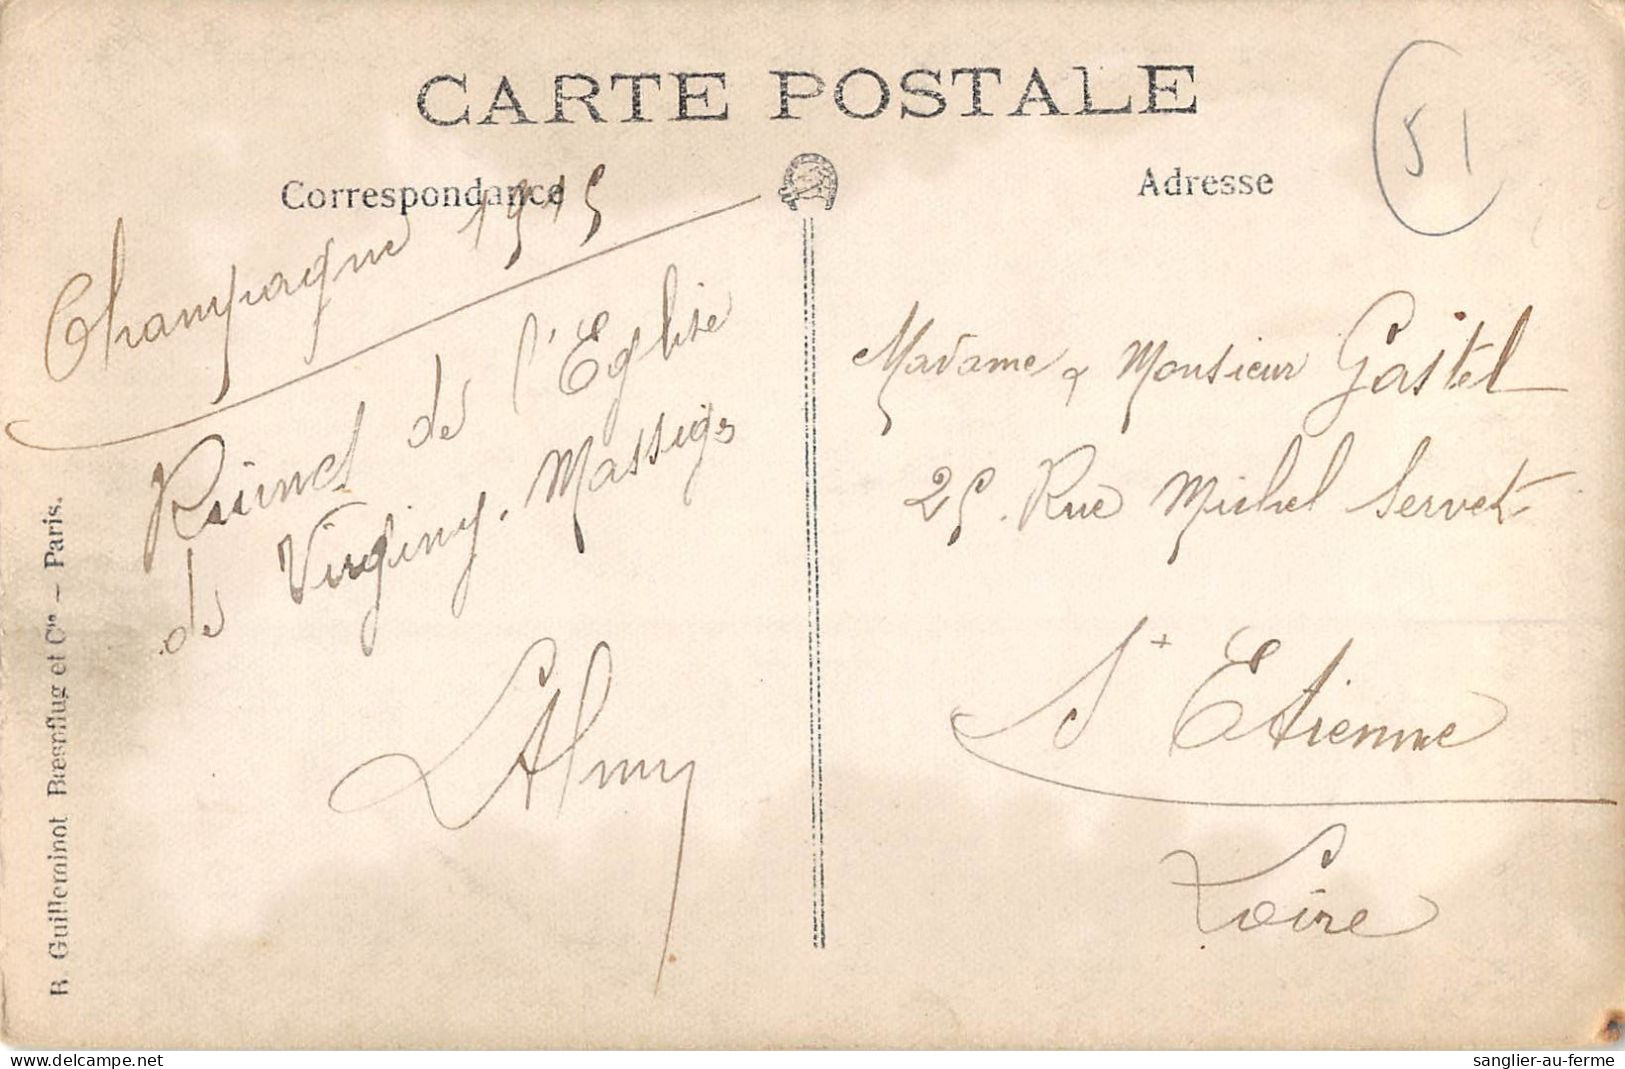 CARTE POSTALE
Correspondance
Adresse
51
Champagne 1915
Ruines de l'Eglise
de Virginy. Massiges
LAlmy
Madame & Monsieur Gastel
25. Rue Michel Servet
St Etienne
Loire
R. Guilleminot Bœspflug et Cie – Paris.
delcampe.net
sanglier-au-ferme